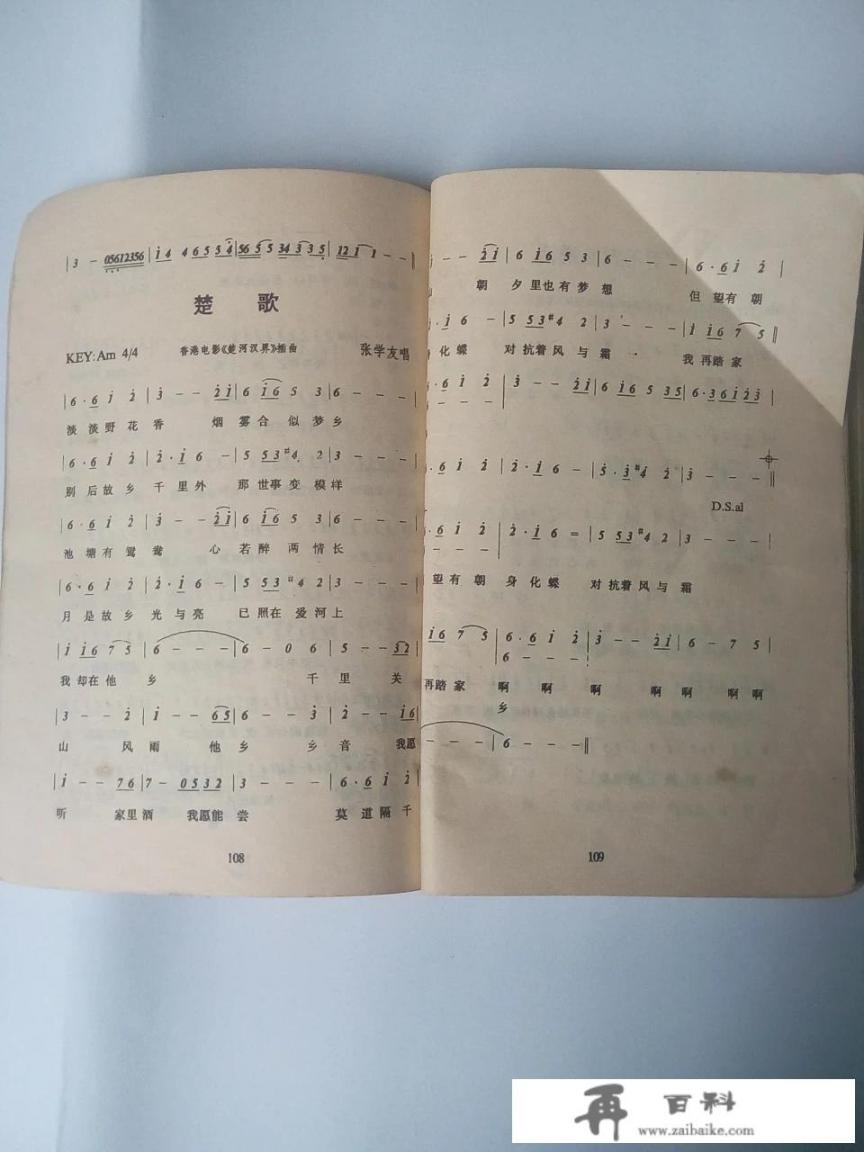 |3 - 05612356|i4 46554|5655 34335|12i1 - -||
楚 歌
KEY: Am 4/4 香港电影《楚河汉界》插曲 张学友唱
|6·6 i 2|3 - - 2i|6 i6 5 3|6 - - -
淡 淡 野 花 香 烟 雾 合 似 梦 乡
|6·6 i 2|2·i 6 -|5 53 #4 2|3 - - -
别 后 故 乡 千 里 外 那 世 事 变 模 样
|6·6 i 2|3 - - 2i|6 i6 5 3|6 - - -
池 塘 有 鸳 鸯 心 若 醉 两 情 长
|6·6 i 2|2·i 6 -|5 53 #4 2|3 - - -
月 是 故 乡 光 与 亮 已 照 在 爱 河 上
|i i6 7 5|6 - - -|6 - 0 6|5 - - 32
我 却 在 他 乡 千 里 关
|3 - - 2|i - - 65|6 - - 3|2 - - i6
山 风 雨 他 乡 乡 音 我愿
|i - - 76|7 - 0532|3 - - -|6·6 i 2
听 家里 酒 我愿能 尝 莫 道 隔 千
108
- - 2i|6 i6 5 3|6 - - -|6·6 i 2|
山 朝 夕 里 也 有 梦 想 但 望 有 朝
i 6 -|5 53 #4 2|3 - - -|i i6 7 5||
身 化 蝶 对 抗 着 风 与 霜 · 我 再 踏 家
- - -|3 - - 2i|6 i6 5 35|6·36i23|
6 i 2|2·i 6 -|5·3 #4 2|3 - - -|
D.S.al
6 i 2|2·i 6 =|5 53 #4 2|3 - - -|
望 有 朝 身 化 蝶 对 抗着 风 与 霜
i6 7 5|6·6 i 2|3 - - 2i|6 - 7 5|
6 - - -
再踏 家 啊 啊 啊 啊 啊 啊 啊
乡
- - -|6 - - -||
109
再 百科
www.zaibaike.com